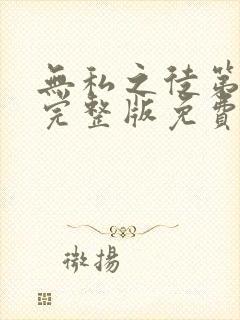 無私之徒第
完整版免費
微揚